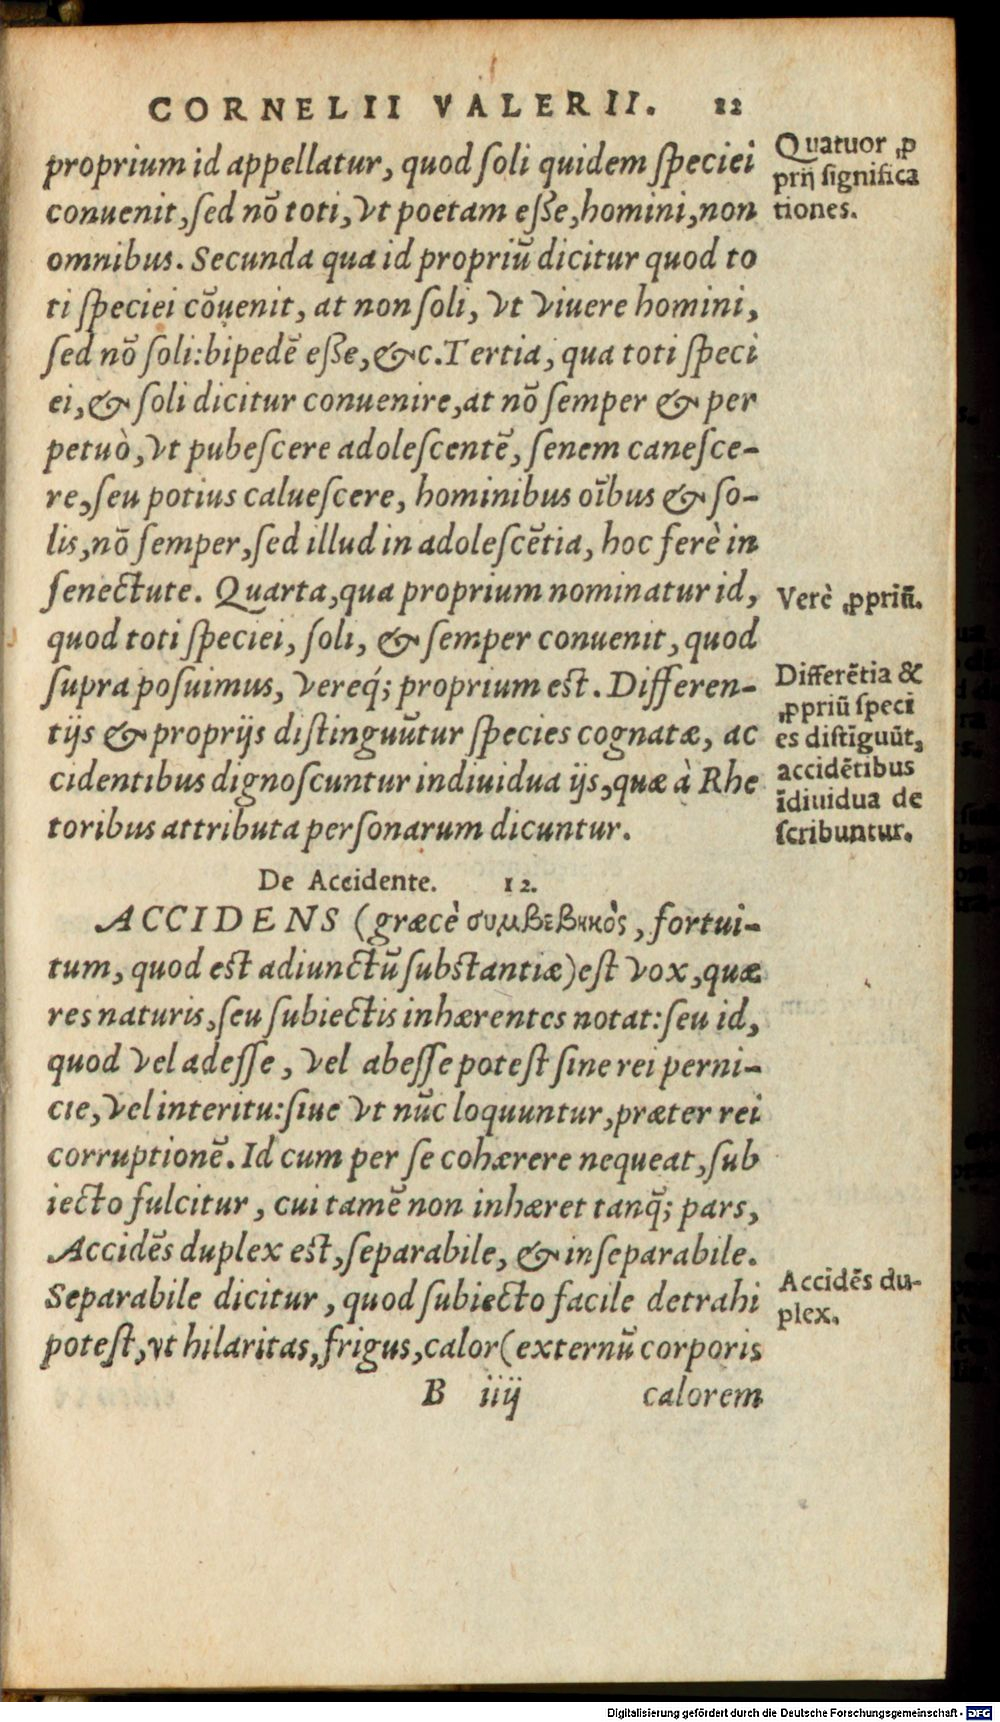 CORNELII VALERII. 12
proprium id appellatur, quod ſoli quidem ſpeciei
conuenit, ſed nõ toti, vt poetam eſſe, homini, non
omnibus. Secunda qua id propriũ dicitur quod to
ti ſpeciei cõuenit, at non ſoli, vt viuere homini,
ſed nõ ſoli: bipedẽ eſſe, &c. Tertia, qua toti ſpeci
ei, & ſoli dicitur conuenire, at nõ ſemper & per
petuò, vt pubeſcere adoleſcentẽ, ſenem caneſce-
re, ſeu potius calueſcere, hominibus oĩbus & ſo-
lis, nõ ſemper, ſed illud in adoleſcẽtia, hoc ferè in
ſenectute. Quarta, qua proprium nominatur id,
quod toti ſpeciei, ſoli, & ſemper conuenit, quod
ſupra poſuimus, vereq́; proprium est. Differen-
tijs & proprijs diſtinguũtur ſpecies cognatæ, ac
cidentibus dignoſcuntur indiuidua ijs, quæ à Rhe
toribus attributa perſonarum dicuntur.
Quatuor ꝓ
prij ſignifica
tiones.
Verè ꝓpriũ.
Differẽtia &
ꝓpriũ ſpeci
es diſtĩguũt,
accidẽtibus
ĩdiuidua de
ſcribuntur.
De Accidente. 12.
ACCIDENS (græcè συμβεβηκὸς, fortui-
tum, quod est adiunctũ ſubſtantiæ) eſt vox, quæ
res naturis, ſeu ſubiectis inhærentes notat: ſeu id,
quod vel adeſſe, vel abeſſe poteſt ſine rei perni-
cie, vel interitu: ſiue vt nũc loquuntur, præter rei
corruptionẽ. Id cum per ſe cohærere nequeat, ſub
iecto fulcitur, cui tamẽ non inhæret tanq̃; pars,
Accidẽs duplex eſt, ſeparabile, & inſeparabile.
Separabile dicitur, quod ſubiecto facile detrahi
poteſt, vt hilaritas, frigus, calor (externũ corporis
Accidẽs du-
plex.
B iiij calorem
Digitalisierung gefördert durch die Deutsche Forschungsgemeinschaft - DFG